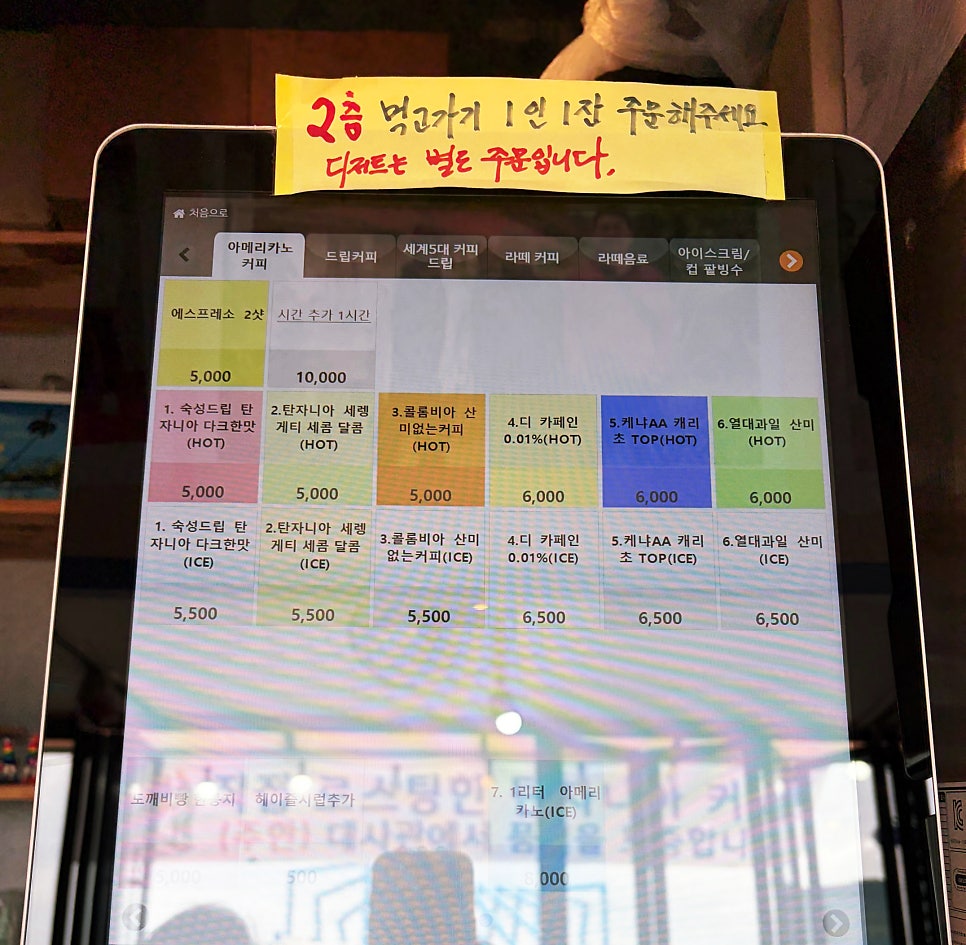 2층 먹고가기 1인 1잔 주문해주세요
디저트는 별도 주문입니다.
처음으로
아메리카노
커피
드립커피
세계5대 커피
드립
라떼 커피
라떼음료
아이스크림/
컵 팥빙수
에스프레소 2샷
5,000
시간 추가 1시간
10,000
1. 숙성드립 탄
자니아 다크한맛
(HOT)
5,000
2.탄자니아 세렝
게티 세콤 달콤
(HOT)
5,000
3.콜롬비아 산
미없는커피
(HOT)
5,000
4.디 카페인
0.01%(HOT)
6,000
5.케냐AA 캐리
초 TOP(HOT)
6,000
6.열대과일 산미
(HOT)
6,000
1. 숙성드립 탄
자니아 다크한맛
(ICE)
5,500
2.탄자니아 세렝
게티 세콤 달콤
(ICE)
5,500
3.콜롬비아 산미
없는커피(ICE)
5,500
4.디 카페인
0.01%(ICE)
6,500
5.케냐AA 캐리
초 TOP(ICE)
6,500
6.열대과일 산미
(ICE)
6,500
도깨비빵
5,000
헤이즐시럽추가
500
7. 1리터 아메리
카노(ICE)
8,000